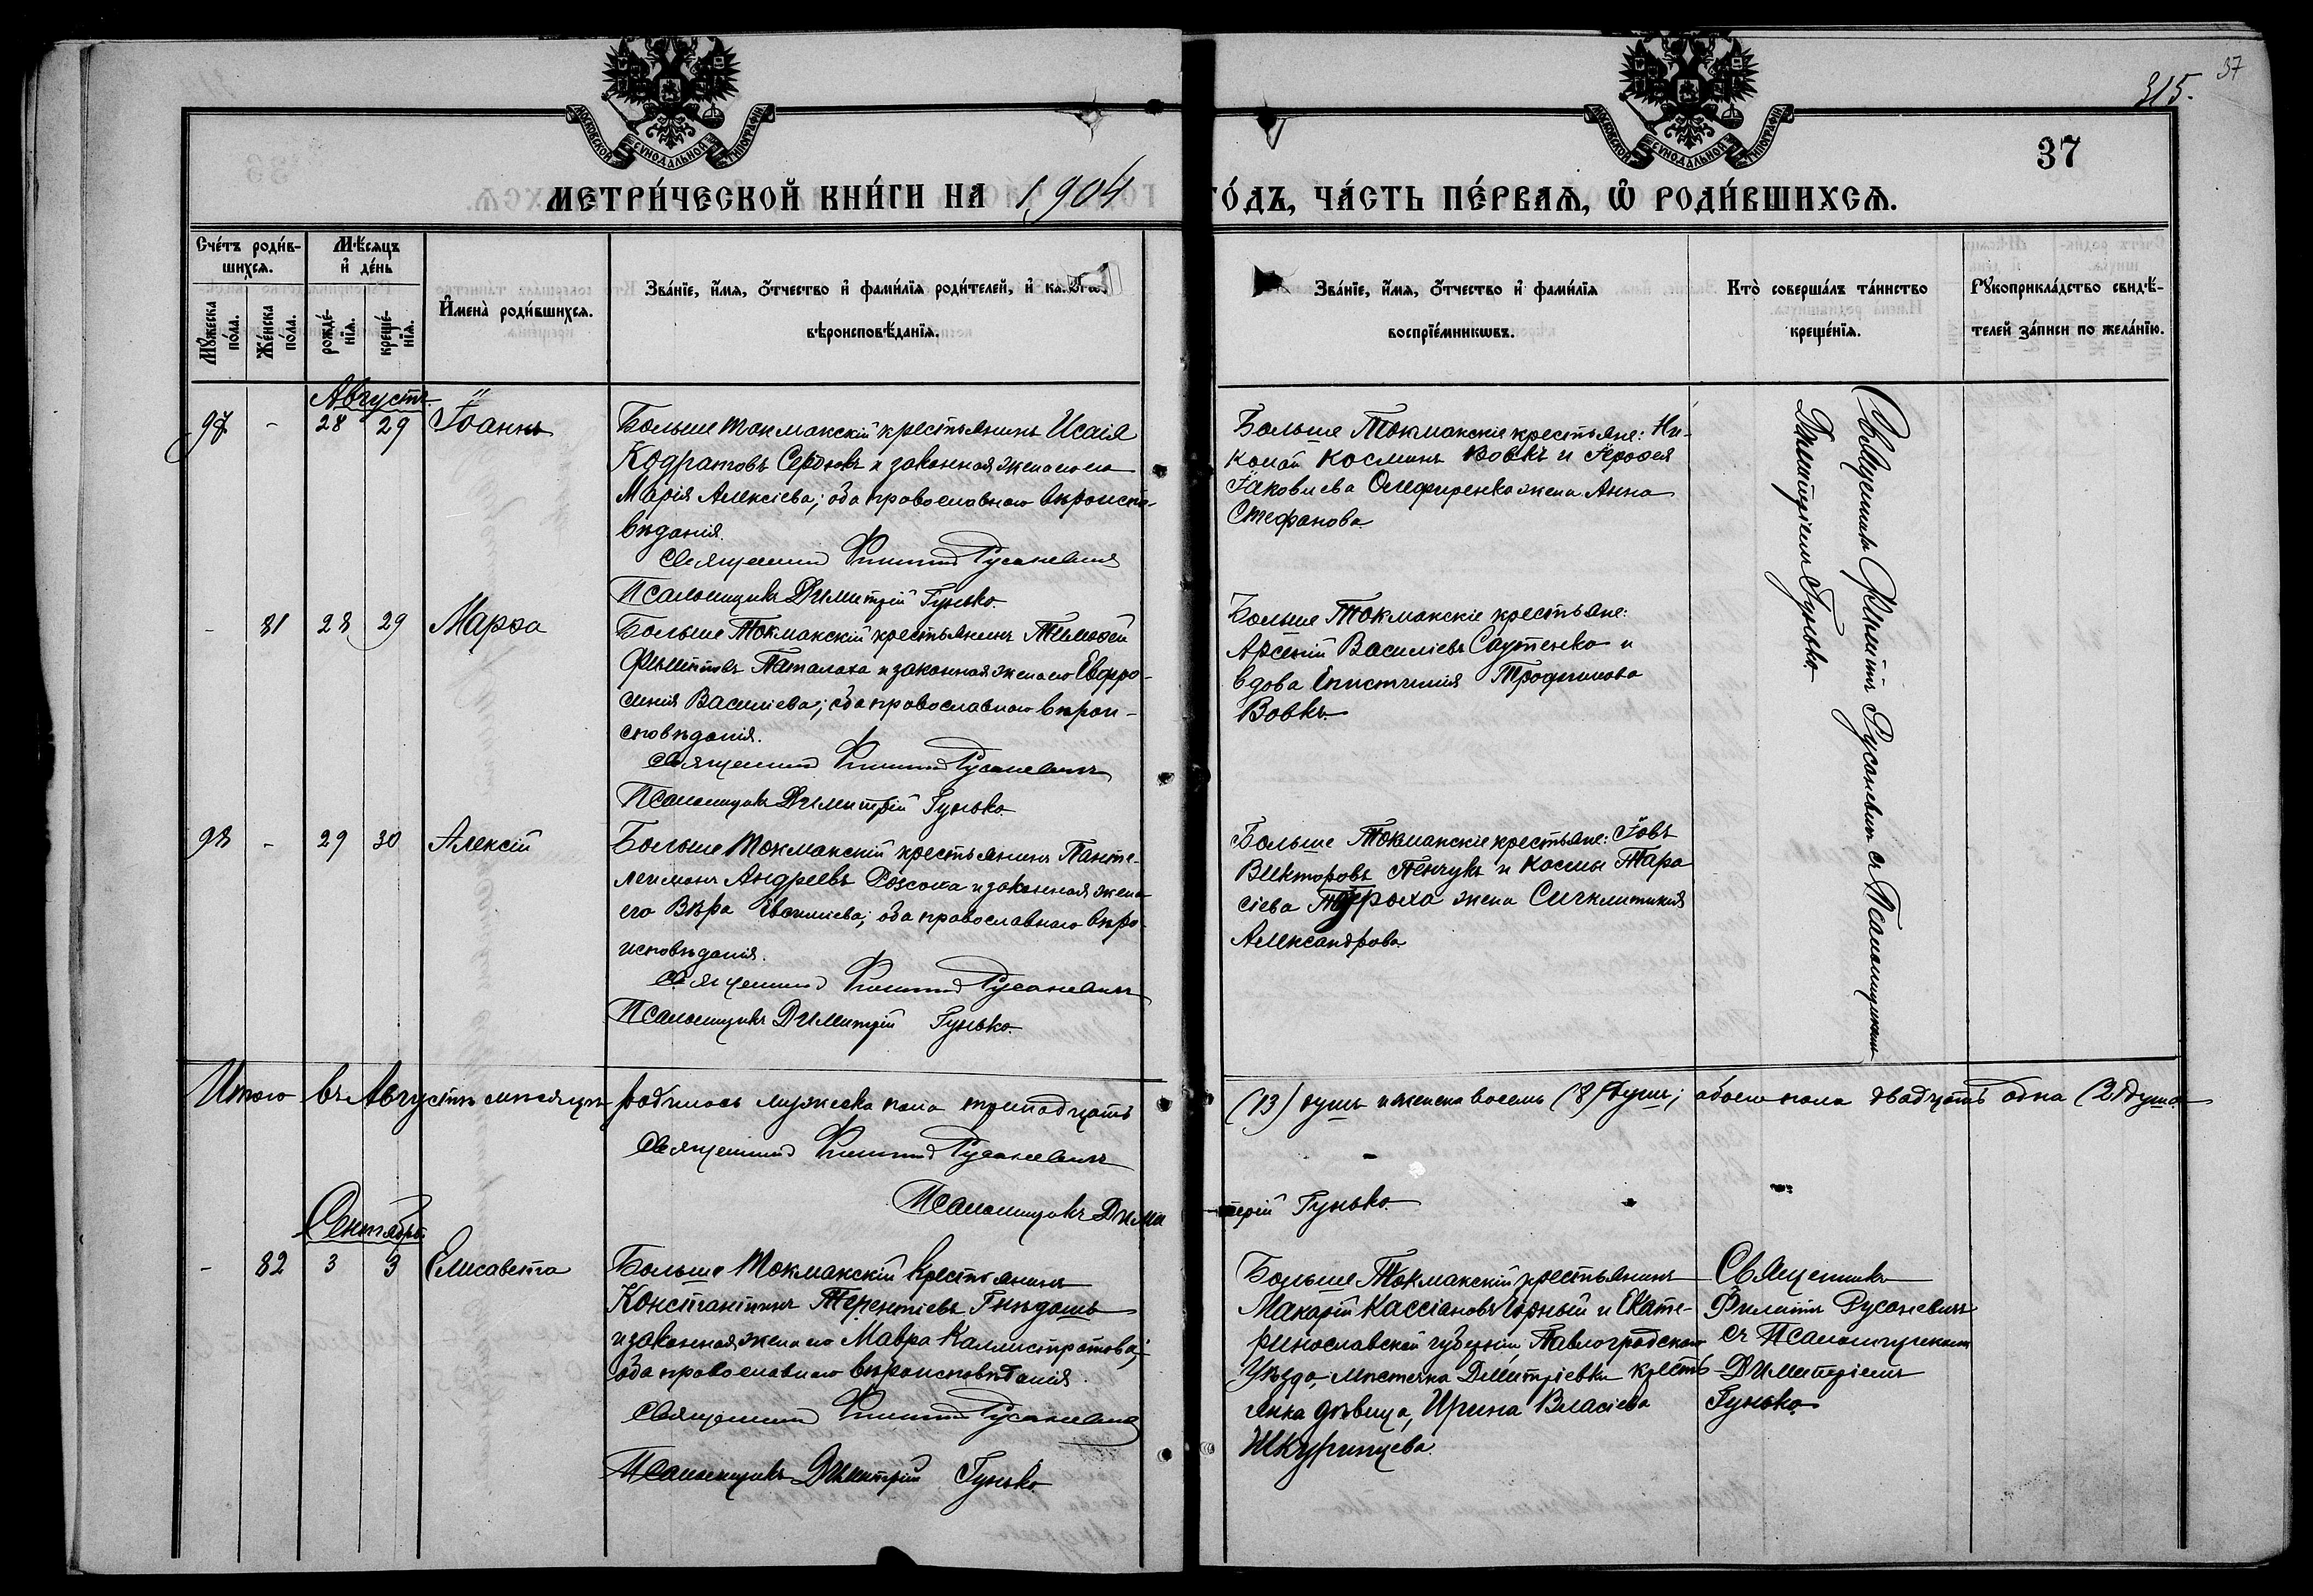 315. 37
37
МОСКОВСКОЙ СѴНОДАЛЬНОЙ ТИПОГРАФІИ
МОСКОВСКОЙ СѴНОДАЛЬНОЙ ТИПОГРАФІИ
МЕТРИ́ЧЕСКОЙ КНИ́ГИ НА 1904 ГО́ДЪ, ЧА́СТЬ ПЕ́РВАѦ, Ѡ РОДИ́ВШИХСѦ.
Сче́тъ роди́в-
шихсѧ.
Мꙋ́жеска по́ла.
Же́нска по́ла.
Мѣ́сѧцъ
и҆ де́нь
рожде́-
нїѧ.
креще́-
нїѧ.
И҆мена̀ роди́вшихсѧ.
Зва́нїе, и҆́мѧ, ѻ҆́тчество и҆ фами́лїѧ роди́телей, и҆
вѣроисповѣ́данїѧ.
Зва́нїе, и҆́мѧ, ѻ҆́тчество и҆ фами́лїѧ
воспрїе́мникѡвъ.
Кто̀ соверша́лъ та́инство
креще́нїѧ.
Рꙋкоприкла́дство свидѣ́-
телей за́писи по жела́нїю.
Августъ.
97 - 28 29 Іоаннъ
Больше Токмакскій крестьянинъ Исаія
Кодратовъ и законная жена его
Марія Алексіева; оба православнаго вѣроиспо-
вѣданія.
Священникъ Филиппъ Русаневичъ
Псаломщикъ Димитрій Гунько.
Больше Токмакскіе крестьяне: Ни-
колай Косминъ Вовкъ и Іерофея
Іаковлева Олефиренка жена Анна
Стефанова
Священникъ Филиппъ Русаневичъ съ Псаломщикомъ
Димитріемъ Гунько.
- 81 28 29 Марѳа
Больше Токмакскій крестьянинъ Тимоѳей
Филипповъ Паталаха и законная жена его Евфро-
синія Василіева; оба православнаго вѣрои-
сповѣданія.
Священникъ Филиппъ Русаневичъ
Псаломщикъ Димитрій Гунько.
Больше Токмакскіе крестьяне:
Арсеній Василіевъ Саутенко и
вдова Епистимія Трофимова
Вовкъ.
98 - 29 30 Алексій
Больше Токмакскій крестьянинъ Панте-
леимонъ Андреевъ и законная жена
его Вѣра оба православнаго вѣро-
исповѣданія.
Священникъ Филиппъ Русаневичъ
Псаломщикъ Димитрій Гунько.
Больше Токмакскіе крестьяне: Іовъ
Викторовъ Пенчукъ и Космы Тара
сіева жена Сигклитикія
Александрова
Итого въ Августѣ мѣсяцѣ родилось мужеска пола тринадцать (13) душъ и женска восемь (8) душъ; обоего пола двадцать одна (21) душа
Священникъ Филиппъ Русаневичъ
Псаломщикъ Димитрій Гунько.
Сентябрь
- 82 3 3 Елисавета
Больше Токмакскій крестьянинъ
Константинъ Терентіевъ Гнѣдашъ
и законная жена его Мавра Каллистратова;
оба православнаго вѣроисповѣданія.
Священникъ Филиппъ Русаневичъ
Псаломщикъ Димитрій Гунько.
Больше Токмакскій крестьянинъ
Макарій Кассіановъ Горный и Екате-
ринославской губерніи, Павлоградскаго
Уѣзда, мѣстечка Дмитріевки кресть
янка дѣвица, Ирина Власіева
Шкуринцева.
Священникъ
Филиппъ Русаневичъ
съ Псаломщикомъ
Димитріемъ
Гунько.